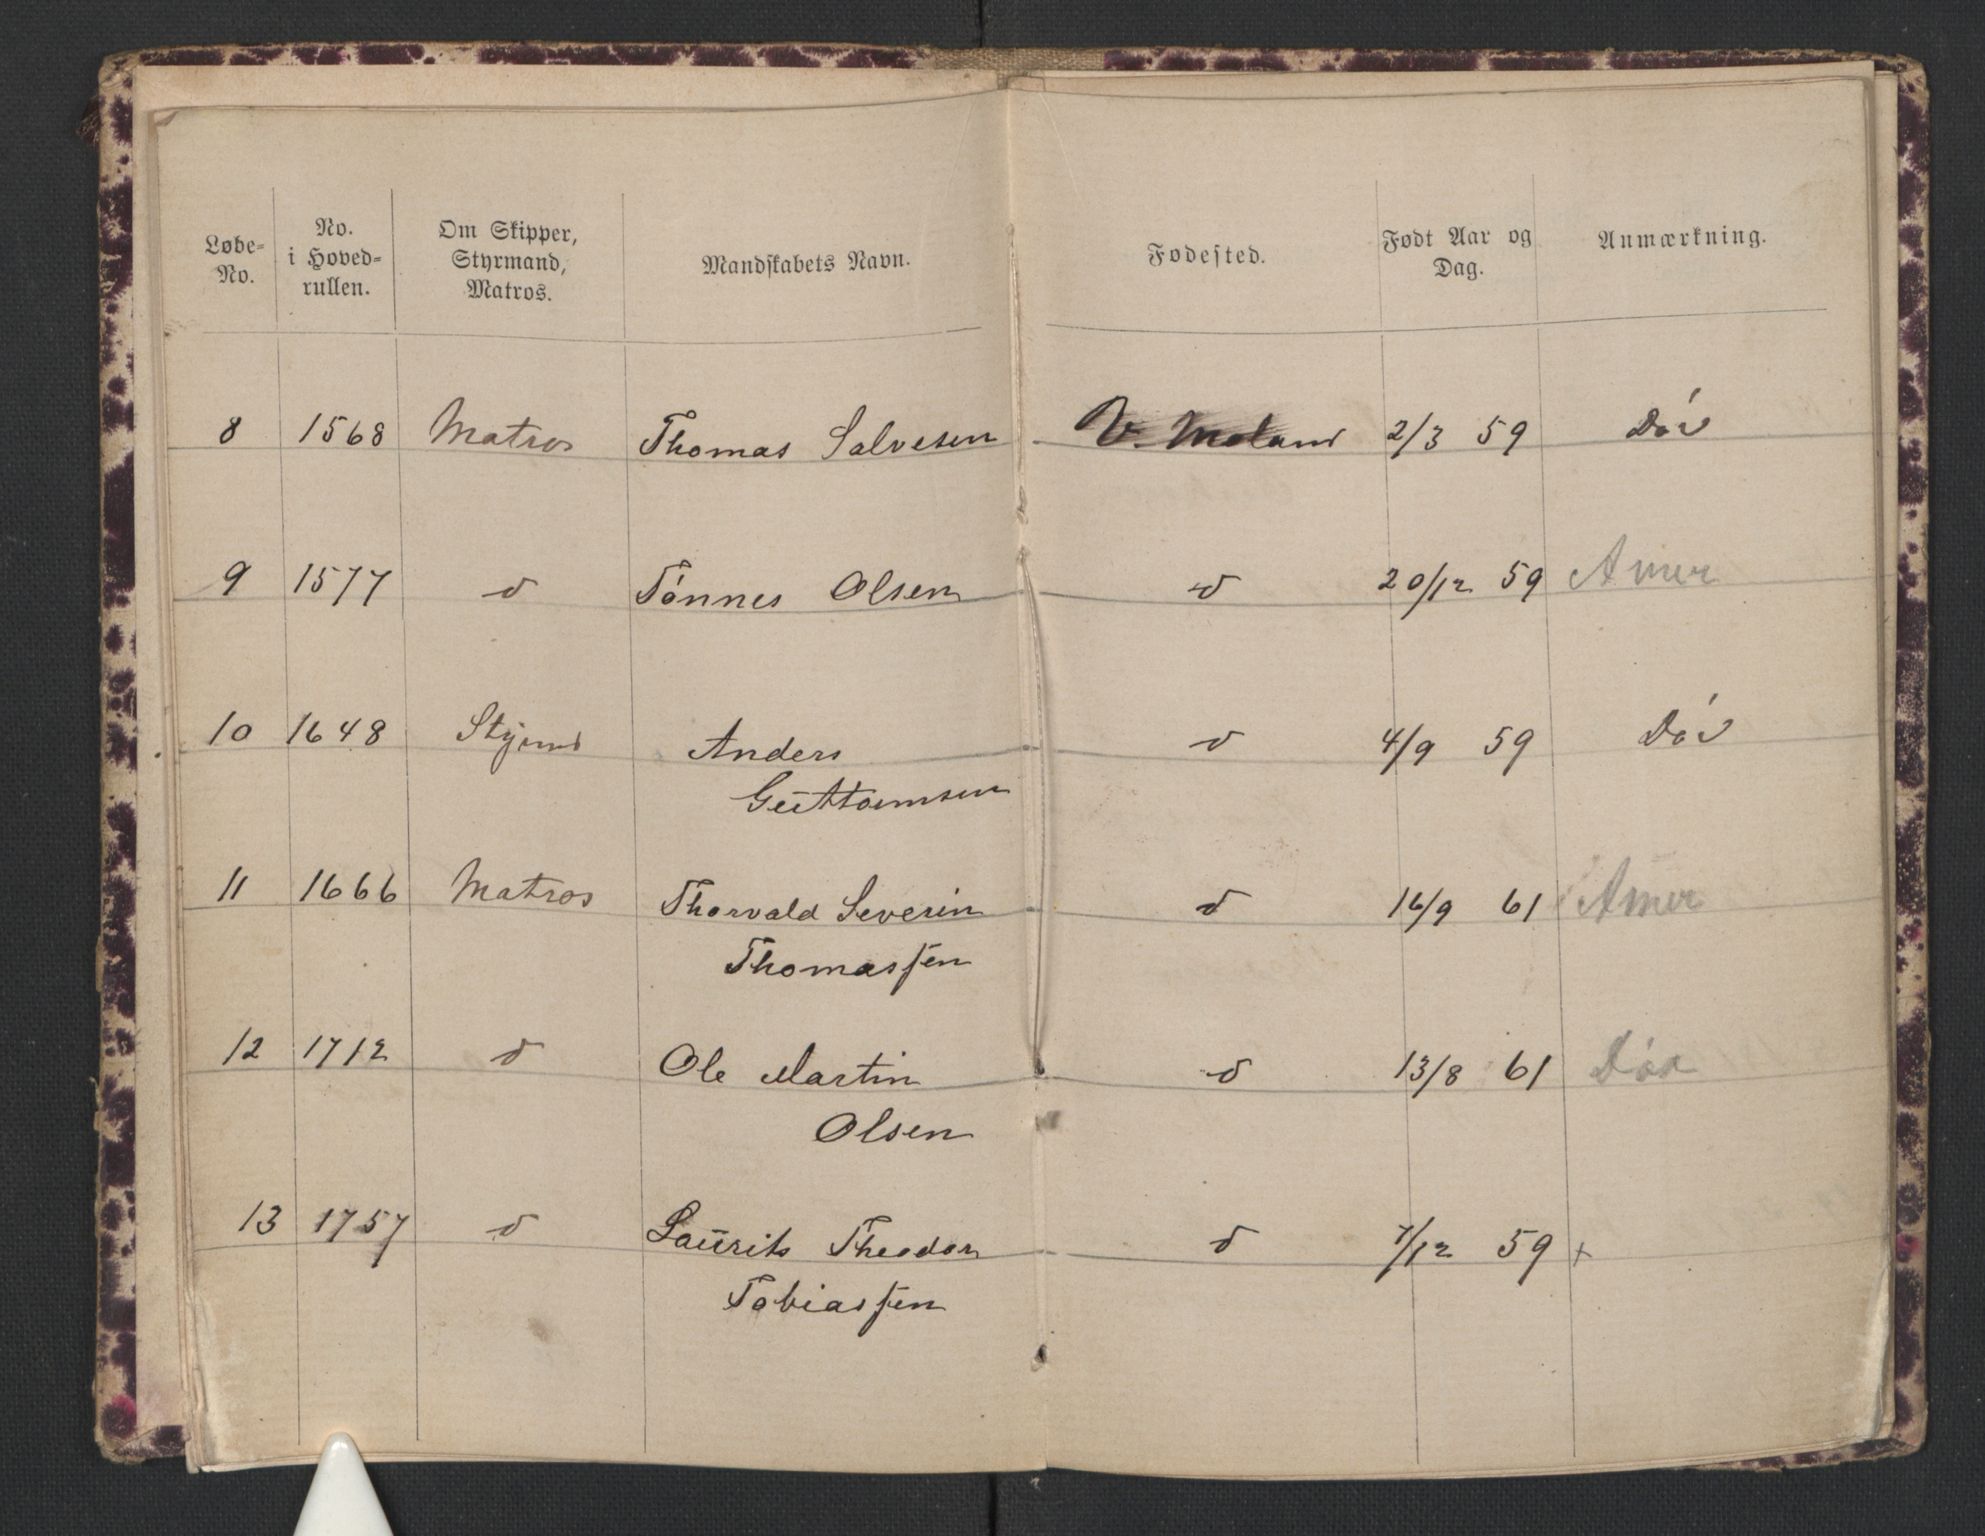 Løbe-No. No. i Hovedrullen. Om Skipper, Styrmand, Matros. Mandskabets Navn. Fødested. Født Aar og Dag. Anmærkning.
8 1568 Matros Thomas Salvesen V. Moland 2/3 59 Død
9 1577 d Tönnes Olsen d 20/12 59 Amer
10 1648 Stymd Anders d 4/9 59 Død
Guttormsen
11 1666 Matros Thorvald Severin d 16/9 61 Amer
Thomassen
12 1712 d Ole Martin d 13/8 61 Død
Olsen
13 1757 d Laurits Theodor d 7/12 59 +
Tobiassen